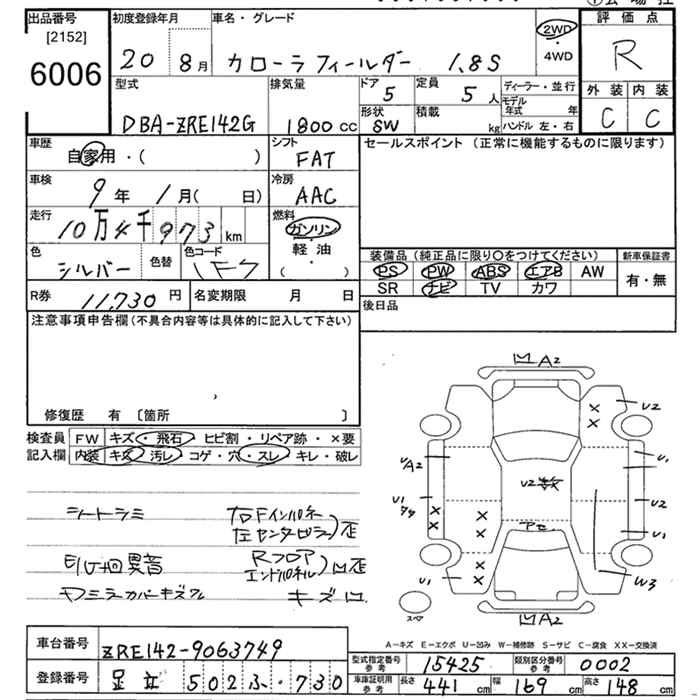 出品番号
[2152]
6006
初度登録年月
20 8月
車名・グレード
カローラフィールダー 1.8S
2WD
・
4WD
評価点
R
外装 内装
C C
型式
DBA-ZRE142G
排気量
1800 cc
ドア
5
定員
5 人
形状
SW
積載
kg
ディーラー・並行
モデル年式 年
ハンドル 左・右
車歴
自家用・( )
シフト
FAT
セールスポイント (正常に機能するものに限ります)
車検
9年 1月( 日)
冷房
AAC
走行
10万4千973 km
燃料
ガソリン
軽・油
( )
色
シルバー
色替
色コード
1F7
装備品 (純正品に限り○をつけてください)
PS PW ABS エアB AW
SR ナビ TV カワ
新車保証書
有・無
R券 11,730 円
名変期限 月 日
後日品
注意事項申告欄 (不具合内容等は具体的に記入して下さい)
修復歴 有 [箇所 ]
検査員記入欄
FW キズ・飛石 ヒビ割・リペア跡・×要
内装 キズ 汚レ コゲ・穴・スレ・キレ・破レ
シートラミ
右Fインパネ
左センターピラー 歪
異音
Rフロア
エンドパネル 凹歪
ドミラーカバーキズ
キズ凹
凹A2
U2
A2
U1
U1
U2
U2数
アセ
U1
U1
W3
凹A2
スペア
A-キズ E-エクボ U-凹み W-補修跡 S-サビ C-腐食 XX-交換済
車台番号
ZRE142-9063749
登録番号
足立 502 ふ・730
型式指定番号
参考
15425
類別区分番号
参考
0002
車庫証明用
参考
長さ 441 cm
幅 169 cm
高さ 148 cm